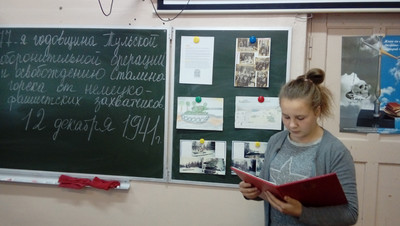 77-я годовщина Тульской
оборонительной операции
и освобождению Сталино-
горска от немецко-
фашистских захватчиков
12 декабря 1941г.